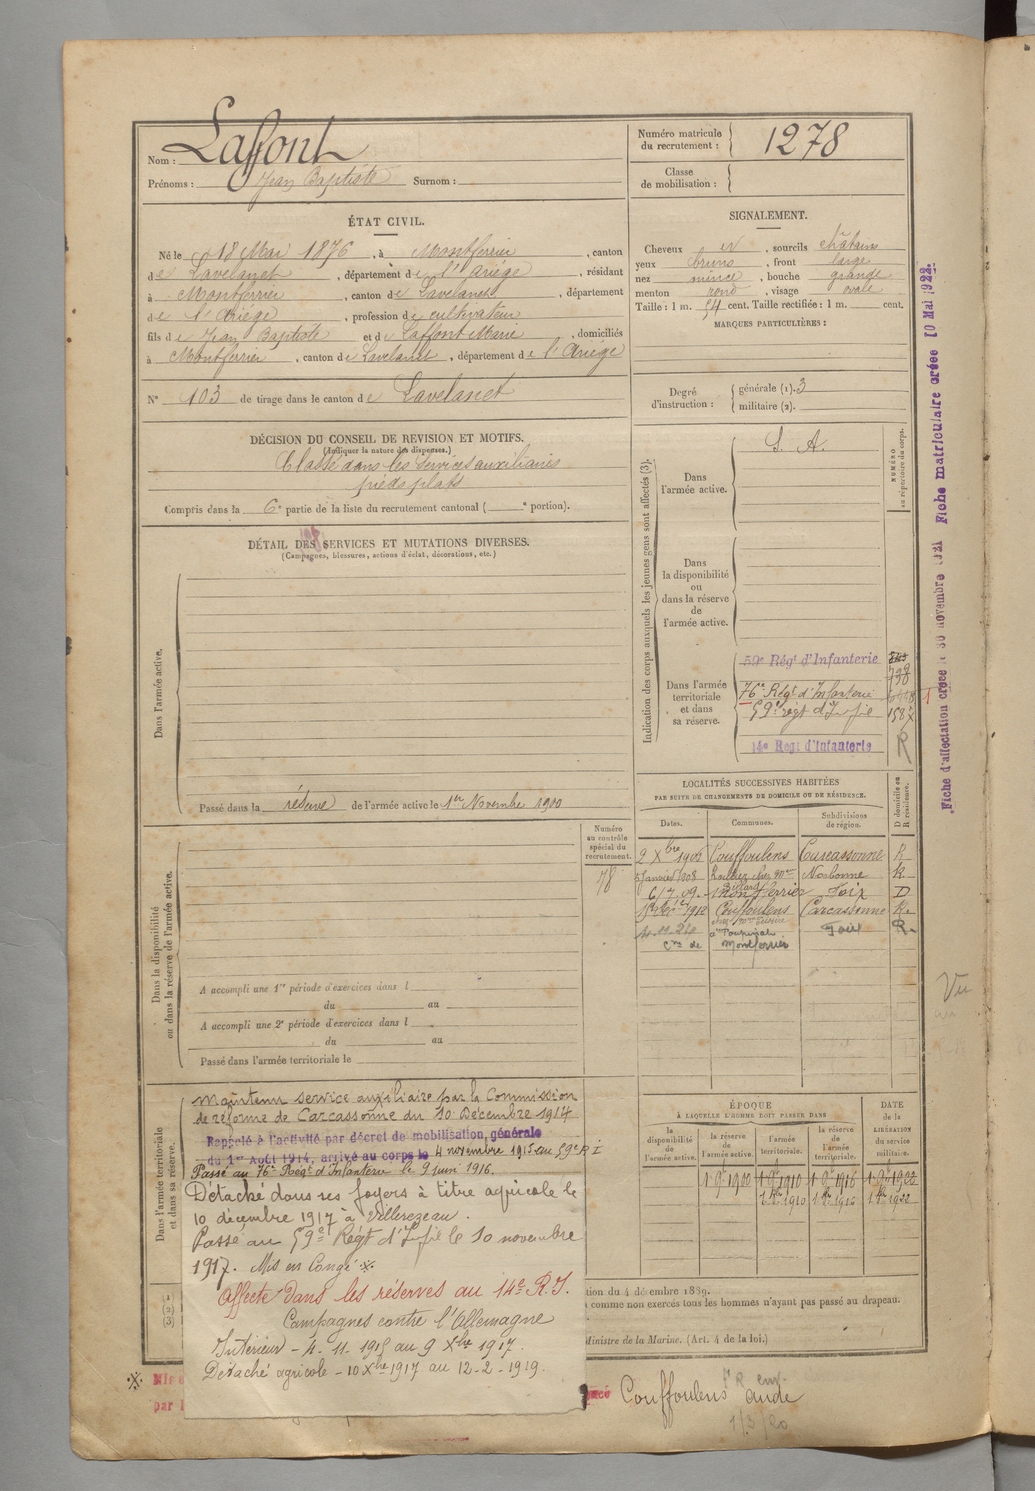 Nom : Laffont
Prénoms : Jean Baptiste Surnom :
Numéro matricule du recrutement : 1278
Classe de mobilisation :
ÉTAT CIVIL.
Né le 18 Mai 1876, à Montferrier, canton
de Lavelanet, département de l'Ariége, résidant
à Montferrier, canton de Lavelanet, département
de l'Ariége, profession de cultivateur
fils de Jean Baptiste et de Laffont Marie, domiciliés
à Montferrier, canton de Lavelanet, département de l'Ariége
N° 103 de tirage dans le canton de Lavelanet
SIGNALEMENT.
Cheveux et, sourcils châtain
yeux bruns, front large
nez mince, bouche grande
menton rond, visage ovale
Taille : 1 m. 54 cent. Taille rectifiée : 1 m. cent.
MARQUES PARTICULIÈRES :
Degré d'instruction : générale (1). 3
militaire (2).
DÉCISION DU CONSEIL DE REVISION ET MOTIFS.
(Indiquer la nature des dispenses.)
Classé dans les services auxiliaires
pieds plats
Compris dans la 6e partie de la liste du recrutement cantonal ( e portion).
DÉTAIL DES SERVICES ET MUTATIONS DIVERSES.
(Campagnes, blessures, actions d'éclat, décorations, etc.)
Dans l'armée active.
Passé dans la réserve de l'armée active le 1er Novembre 1900
Indication des corps auxquels les jeunes gens sont affectés (3).
NUMÉRO au répertoire du corps.
Dans l'armée active.
S. A.
Dans la disponibilité ou dans la réserve de l'armée active.
Dans l'armée territoriale et dans sa réserve.
59e Régt d'Infanterie
738
76e Régt d'Infanterie
59e régt d'Infie 1587
14e Régt d'Infanterie R
Fiche d'affectation créée le 30 novembre 1921 Fiche matriculaire créée 10 Mai 1922.
Dans la disponibilité ou dans la réserve de l'armée active.
Numéro au contrôle spécial du recrutement.
78
A accompli une 1re période d'exercices dans l
du au
A accompli une 2e période d'exercices dans l
du au
Passé dans l'armée territoriale le
LOCALITÉS SUCCESSIVES HABITÉES
PAR SUITE DE CHANGEMENTS DE DOMICILE OU DE RÉSIDENCE.
Dates. Communes. Subdivisions de région. D domicile ou R résidence.
2 Xbre 1906 Couffoulens Carcassonne R
Janvier 1908 Narbonne R
6/7 09 Montferrier Foix D
1912 Couffoulens Carcassonne R.
Foix R.
Cne de Montferrier
Vu
Dans l'armée territoriale et dans sa réserve.
Maintenu service auxiliaire par la Commission
de réforme de Carcassonne du 10 Décembre 1914
Rappelé à l'activité par décret de mobilisation générale
du 1er Août 1914, arrivé au corps le 4 novembre 1915 au 59e R I
Passé au 76e Régt d'Infanterie le 9 juin 1916.
Détaché dans ses foyers à titre agricole le
10 décembre 1917 à Villerezeau.
Passé au 59e Régt d'Infie le 10 novembre
1917. Mis en Congé
Affecté dans les réserves au 14e R.I.
Campagnes contre l'Allemagne
Intérieur - 4-11-1915 au 9 Xbre 1917.
Détaché agricole - 10 Xbre 1917 au 12-2-1919.
ÉPOQUE
À LAQUELLE L'HOMME DOIT PASSER DANS
la disponibilité de l'armée active.
la réserve de l'armée active.
l'armée territoriale.
la réserve de l'armée territoriale.
DATE de la LIBÉRATION du service militaire.
1 9e 1900 1 9e 1910 1 9e 1916 1 9e 1922
1910 1916 1922
tion du 4 décembre 1889.
comme non exercés tous les hommes n'ayant pas passé au drapeau.
Ministre de la Marine. (Art. 4 de la loi.)
Mis e
par
Couffoulens Aude
1/3/20